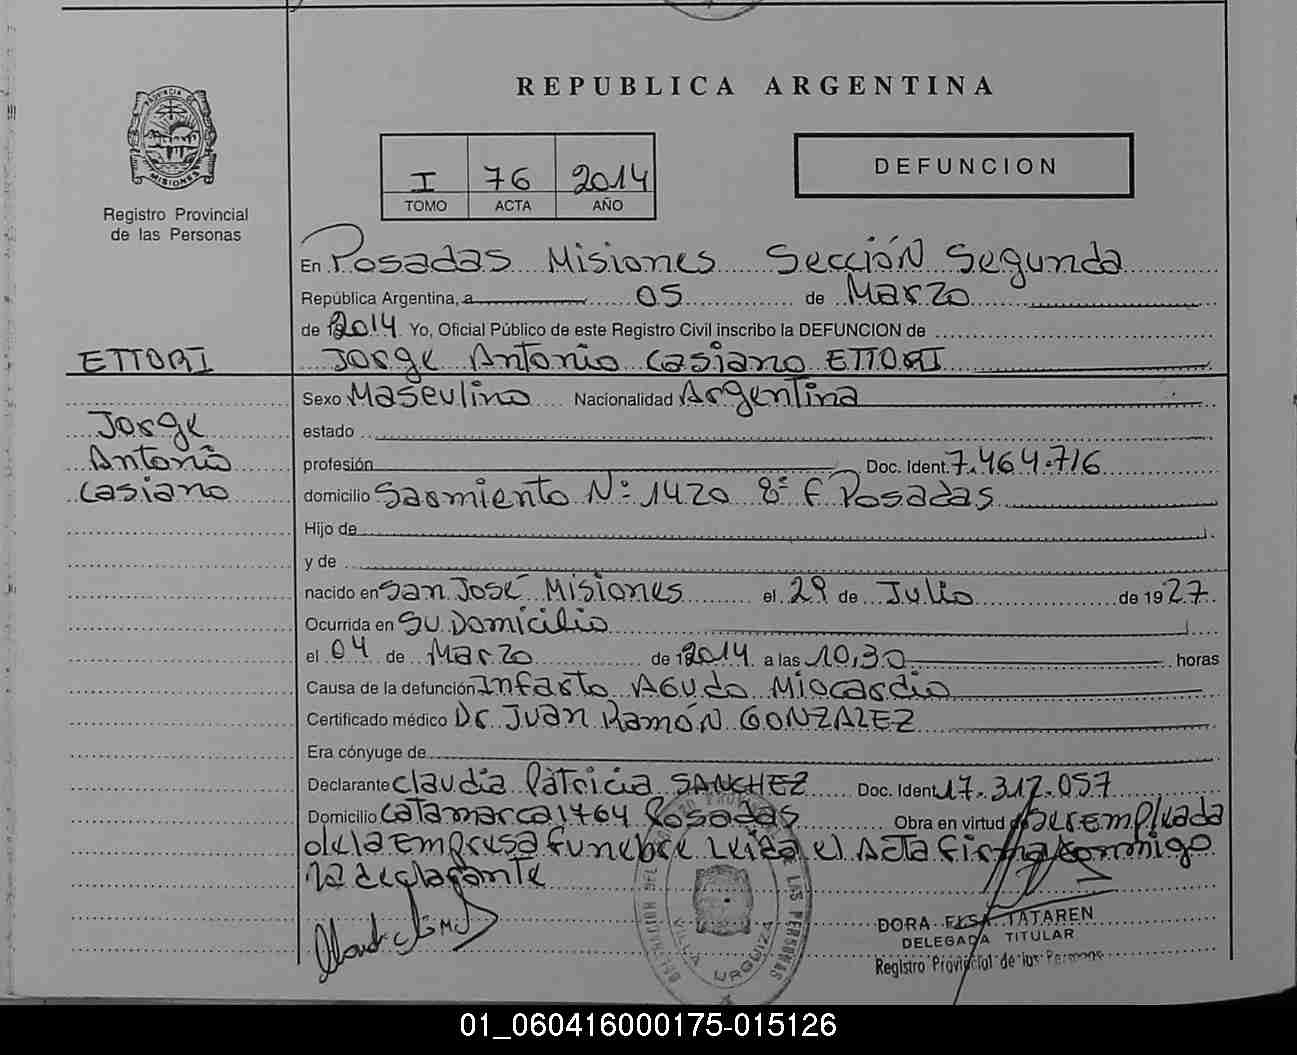 REPUBLICA ARGENTINA
PROVINCIA DE MISIONES
Registro Provincial
de las Personas
I 76 2014
TOMO ACTA AÑO
DEFUNCION
En Posadas Misiones Sección Segunda
República Argentina, a 05 de Marzo
de 2014 Yo, Oficial Público de este Registro Civil inscribo la DEFUNCION de
ETTORI
Jorge Antonio Casiano ETTORI
Jorge
Antonio
Casiano
Sexo Masculino Nacionalidad Argentina
estado
profesión Doc. Ident. 7.464.716
domicilio Sarmiento Nº 1420 8º F Posadas
Hijo de
y de
nacido en San José Misiones el 29 de Julio de 1927
Ocurrida en Su Domicilio
el 04 de Marzo de 2014 a las 10,30 horas
Causa de la defunción Infarto Agudo Miocardio
Certificado médico Dr. Juan Ramón GONZALEZ
Era cónyuge de
Declarante Claudia Patricia SANCHEZ Doc. Ident. 17.317.057
Domicilio Catamarca 1764 Posadas Obra en virtud de ser empleada
de la Empresa Funebre Leida el Acta firma conmigo
la declarante
DORA ELSA TATAREN
DELEGADA TITULAR
Registro Provincial de las Personas
VILLA URQUIZA
01_060416000175-015126